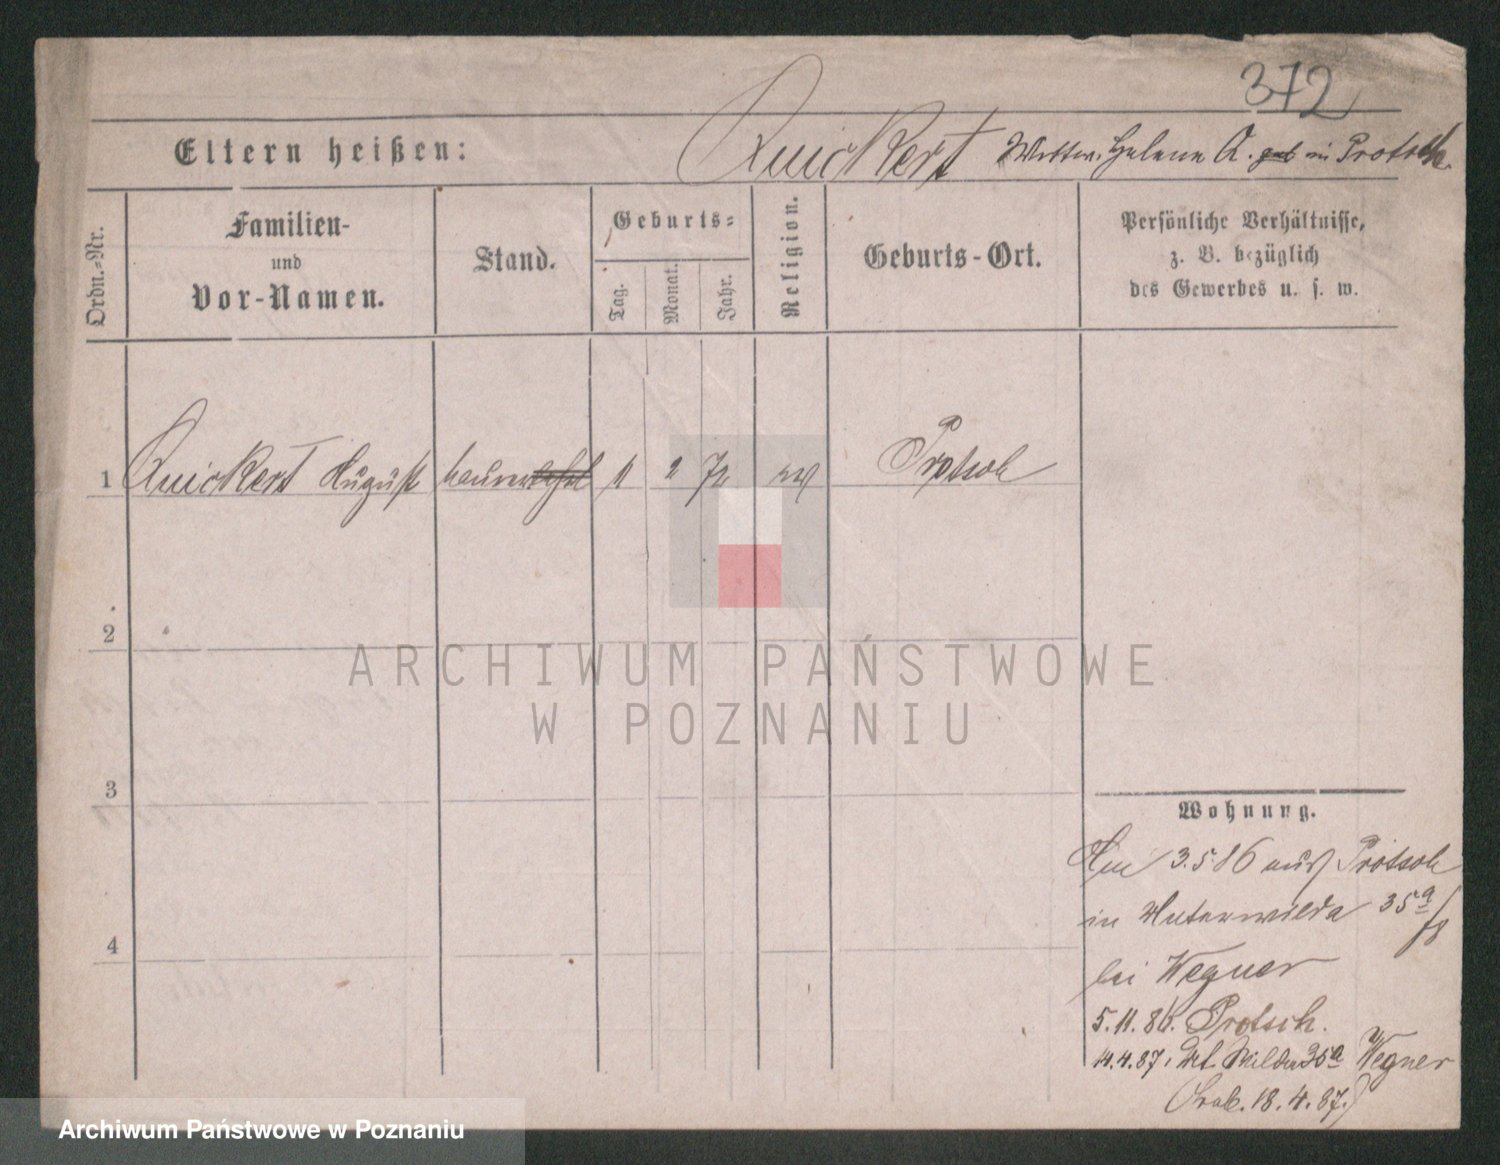 372
Eltern heißen:
Quickert Wittw. Helene A. geb in Protsch.
Ordn.-Nr.
Familien-
und
Vor-Namen.
Stand.
Geburts-
Tag.
Monat.
Jahr.
Religion.
Geburts-Ort.
Persönliche Verhältnisse,
z. B. bezüglich
des Gewerbes u. s. w.
1 Quickert August 2 72 Protsch
2
ARCHIWUM PAŃSTWOWE
W POZNANIU
3
Wohnung.
Am 3.5.86 aus Protsch
in Unterwilda 35a
4
bei Wegner
5.11.86. Protsch.
14.4.87, Ut. Wilda 35a Wegner
18.4.87.)
Archiwum Państwowe w Poznaniu